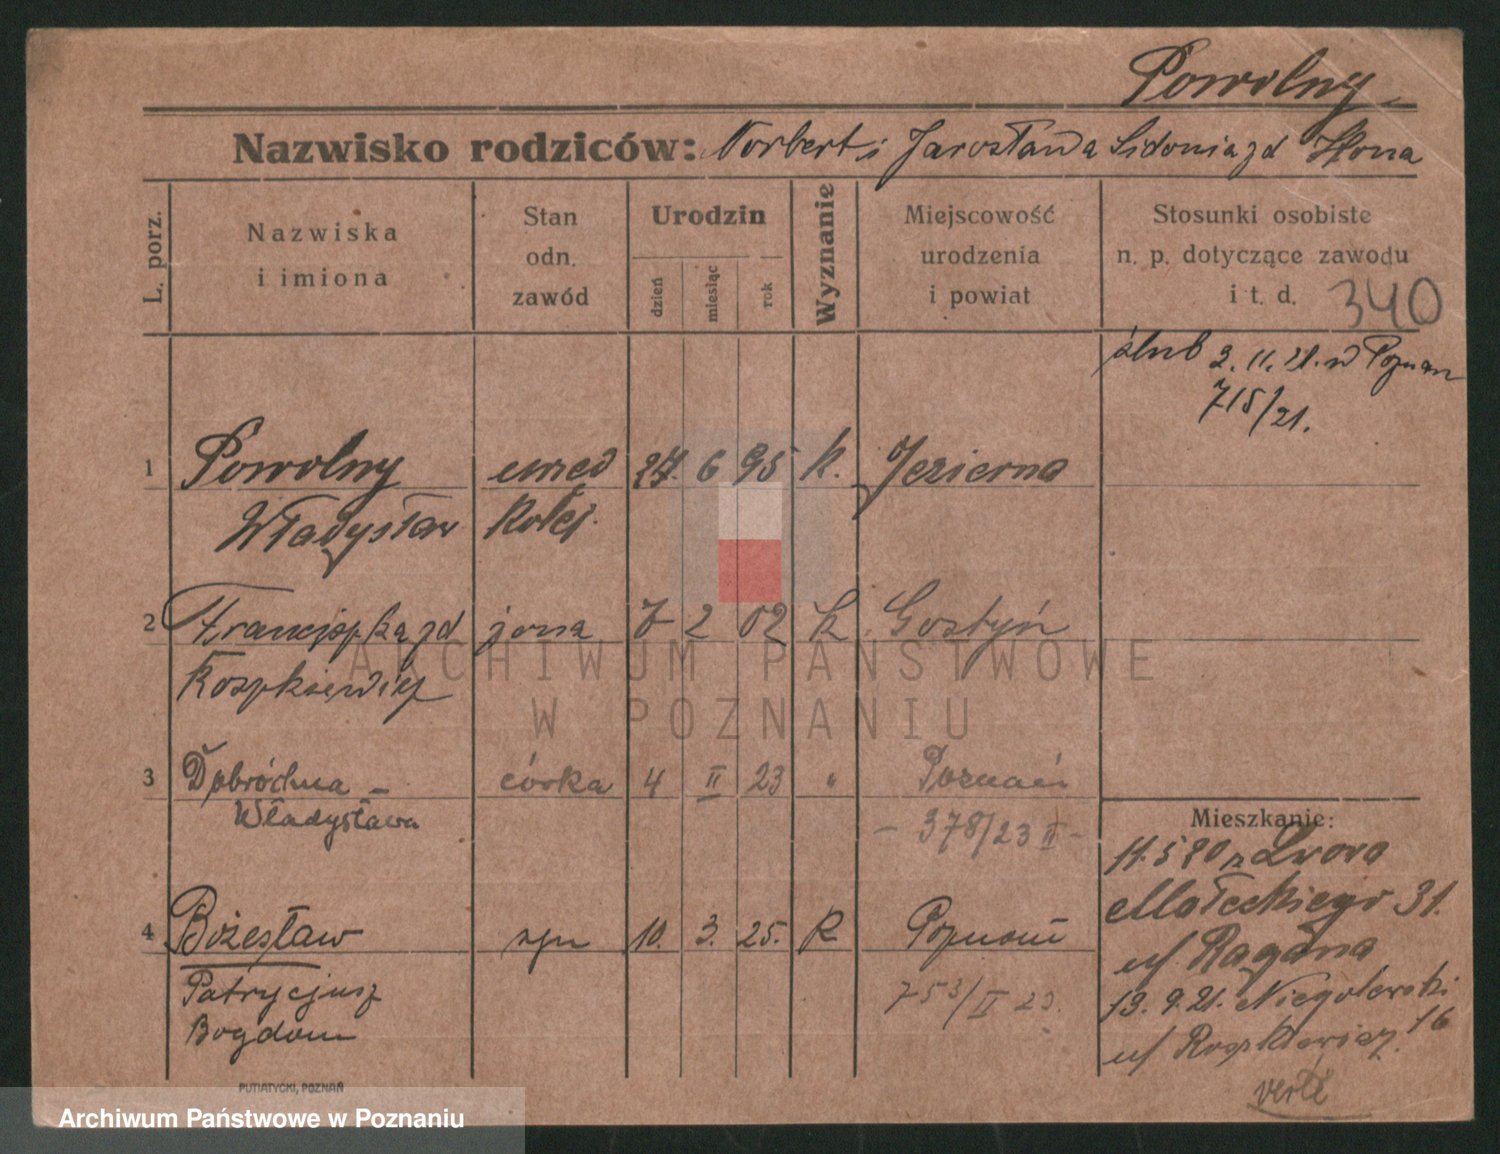 Powolny
Nazwisko rodziców: Norbert i Jarosława Sidonia zd Ilona
L. porz.
Nazwiska
i imiona
Stan
odn.
zawód
Urodzin
dzień
miesiąc
rok
Wyznanie
Miejscowość
urodzenia
i powiat
Stosunki osobiste
n. p. dotyczące zawodu
i t. d.
340
ślub 2. 11. 21. w Poznan
715/21.
1 Powolny urzed 27. 6 95 k. Jezierna
Władysław Kolej.
2 Franciszka zd żona 7 2 02 k Gostyń
Roszkiewicz
3 Dobróchna - córka 4 II 23 " Poznań
Władysława - 378/23 II -
4 Bożesław syn 10. 3. 25. k Poznań
Patrycjusz 753/II
Bogdan
Mieszkanie:
11.5 20 z Lwowa
Małeckiego 31.
u/
13. 9. 21. Niegolewski
u/ Roszkiewicz 16
verte
PUTIATYCKI, POZNAŃ
ARCHIWUM PAŃSTWOWE
W POZNANIU
Archiwum Państwowe w Poznaniu